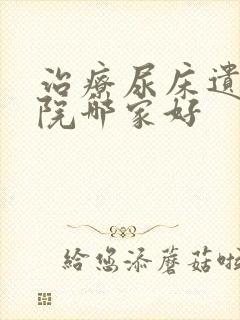 治療尿床遺
院哪家好
給您添蘑菇啦